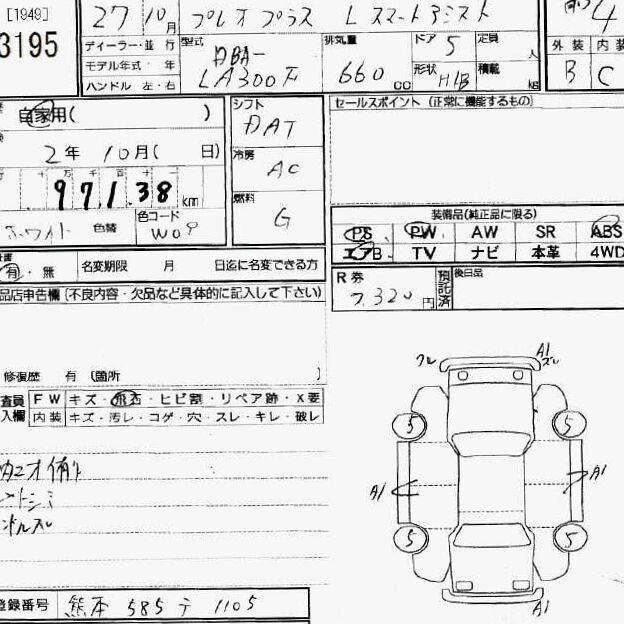 [1949] 27 10月 プレオ プラス L スマートアシスト 4
3195
ディーラー・並 行 型式 DBA- LA300F 排気量 660 cc ドア 5 定員 人 外装 内装
モデル年式・ 年 形状 H/B 積載 kg B C
ハンドル 左・右
自家用( ) シフト DAT セールスポイント (正常に機能するもの)
2年 10月( 日) 冷房 AC
十 万 千 百 十 一
97138 km 燃料 G
ホワイト 色替 色コード W09
装備品(純正品に限る)
PS PW AW SR ABS
エアB TV ナビ 本革 4WD
有・無 名変期限 月 日迄に名変できる方
R券 7,320円 預託済 後日品
品店申告欄(不良内容・欠品など具体的に記入して下さい)
修復歴 有 (箇所 )
査員 FW キズ・飛石・ヒビ割・リペア跡・X要
入欄 内装 キズ・汚レ・コゲ・穴・スレ・キレ・破レ
A1
5 5
A1 A1
5 5
A1
登録番号 熊本 585 テ 1105